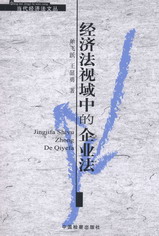 当代经济法文丛
王延川 著
经济法视域中的企业法
Jingjifa Shiyu
Zhong
De Qiyefa
中国检察出版社